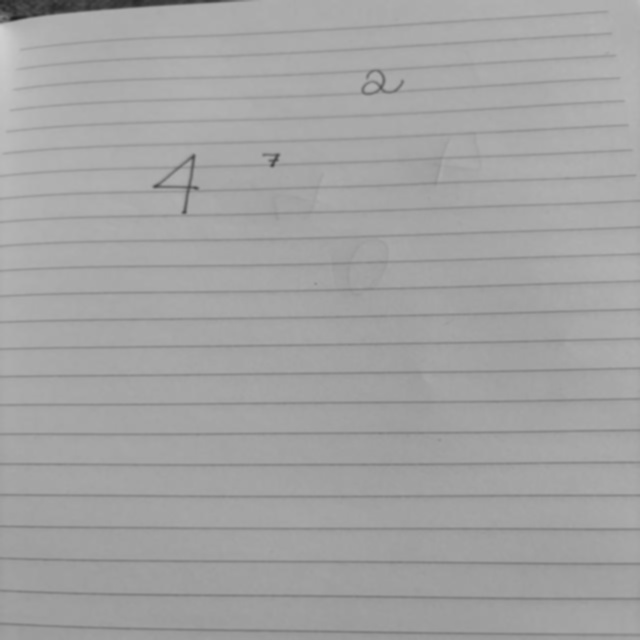 2
4 7